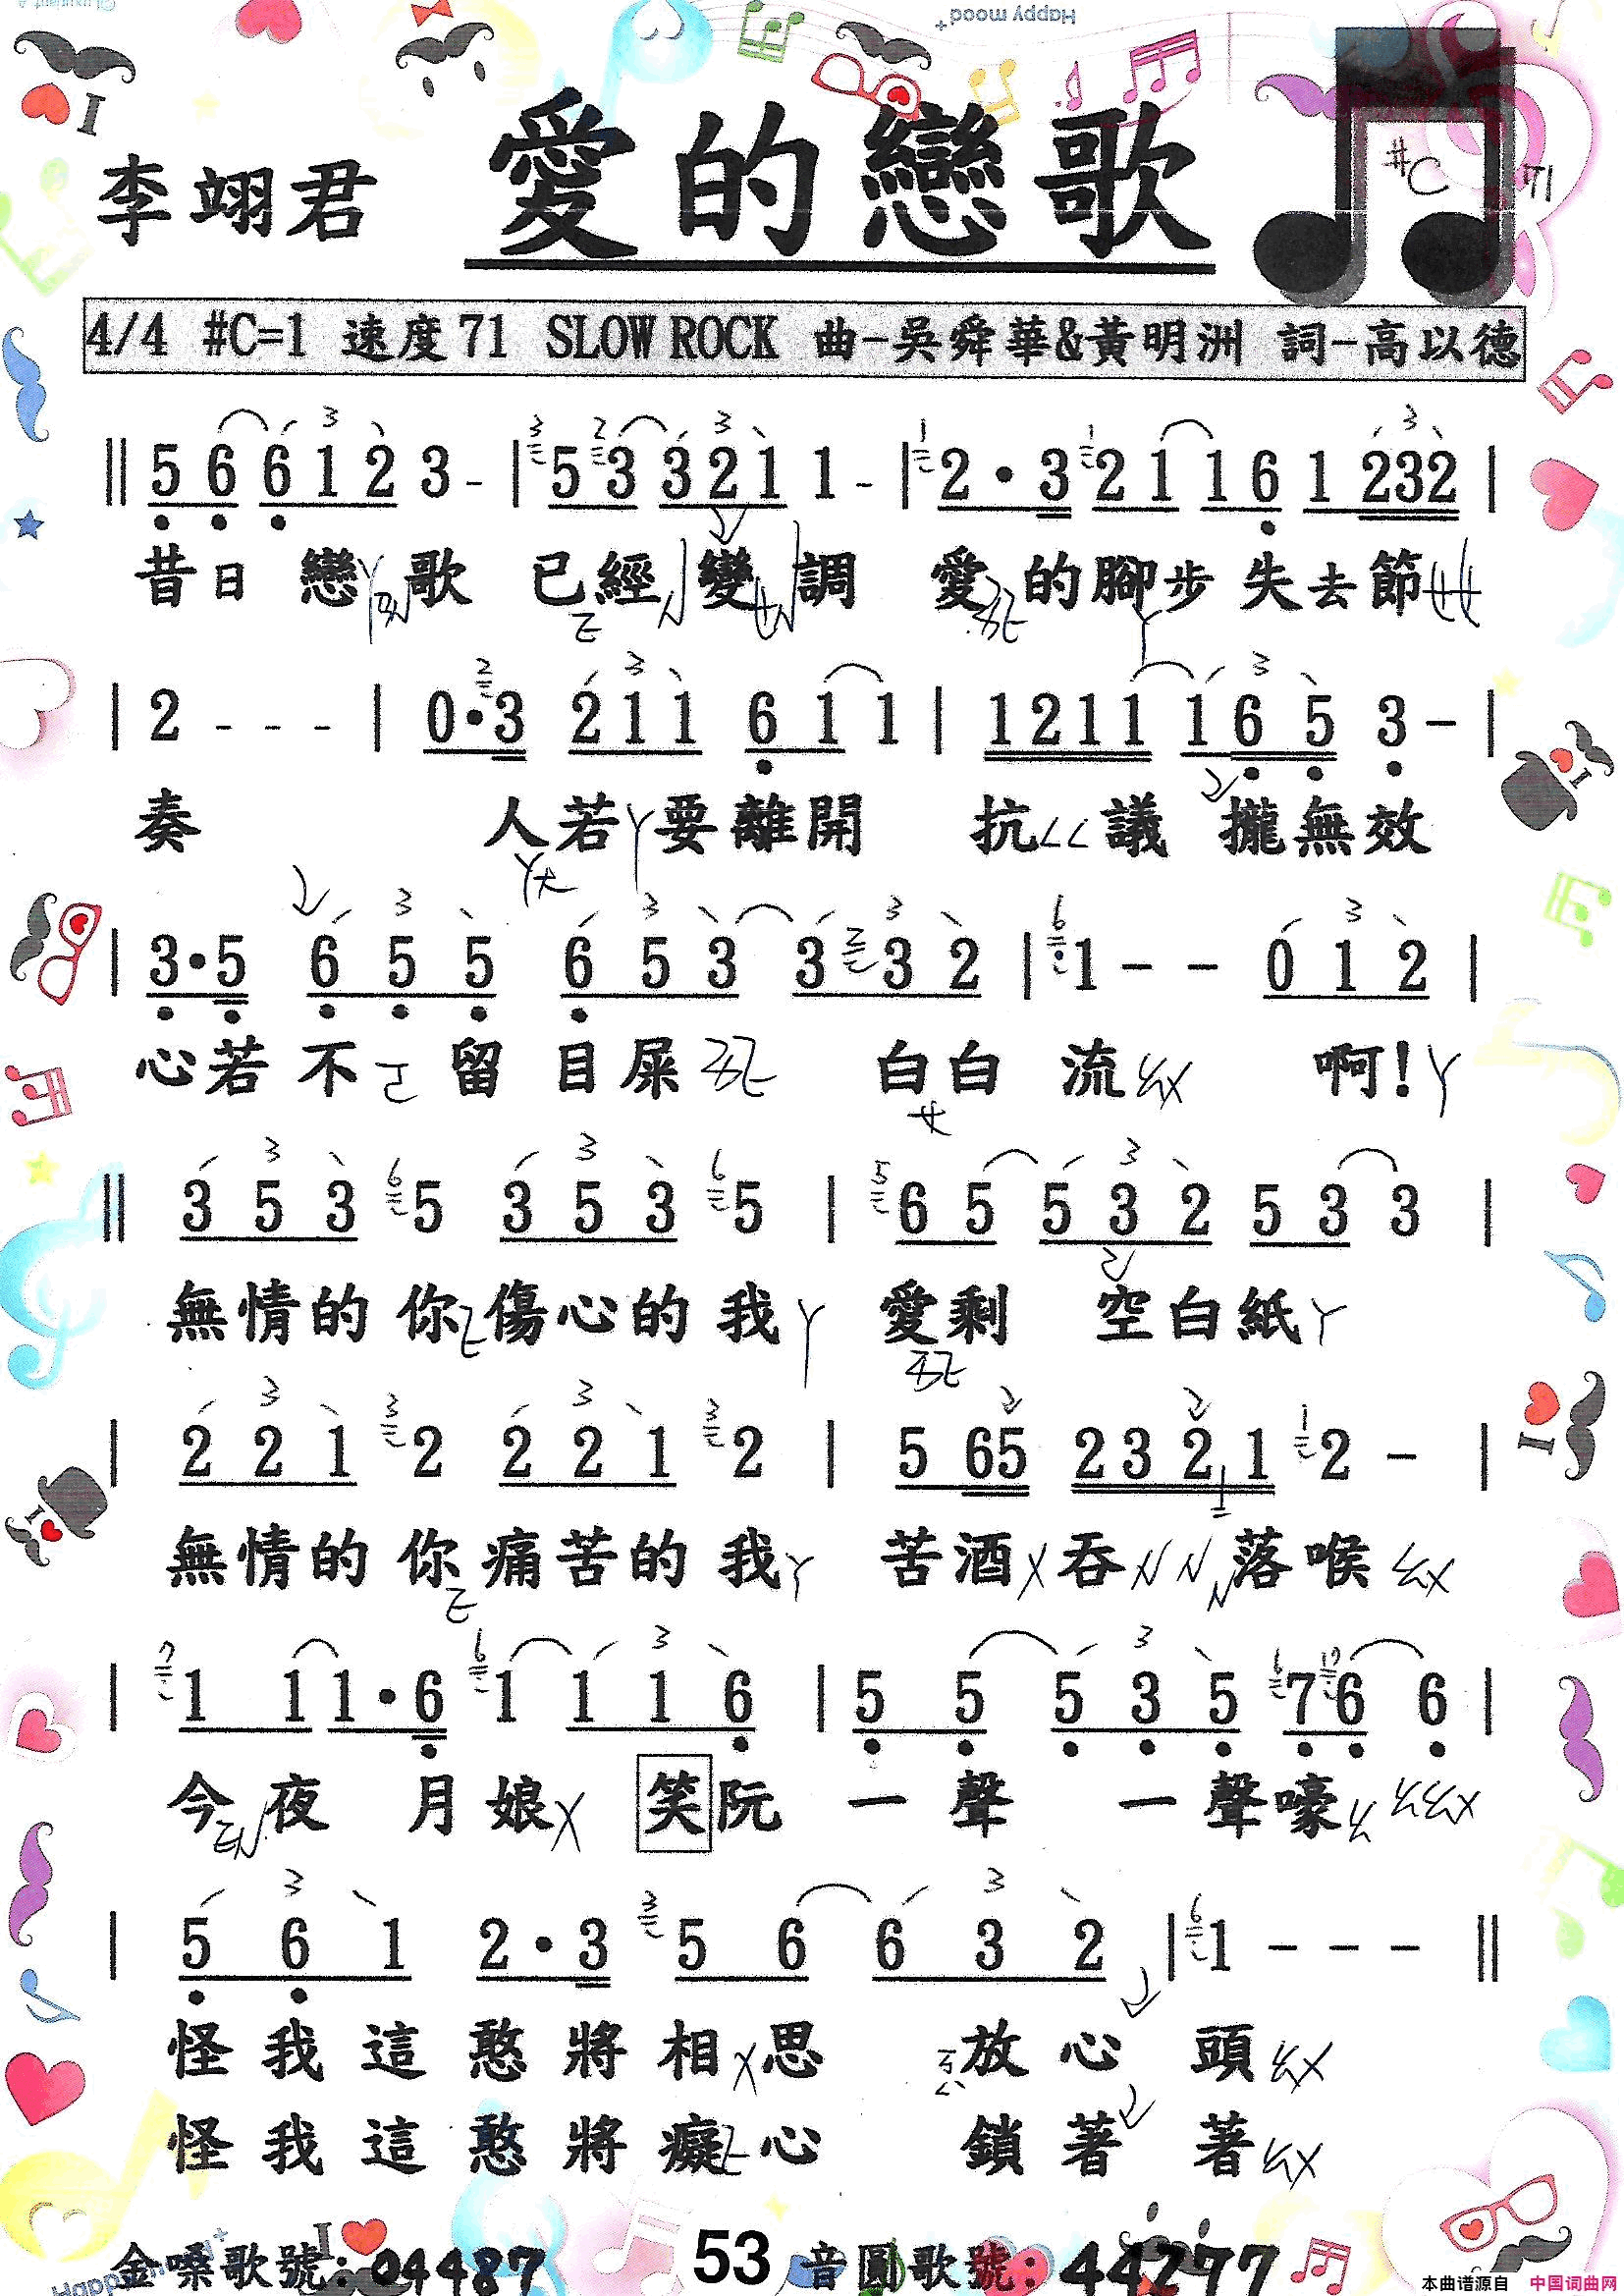 Happy mood
李翊君 愛的戀歌
#C
71
4/4 #C=1 速度71 SLOW ROCK 曲-吳舜華&黃明洲 詞-高以德
‖ 5 6 6 1 2 3 - | 5 3 3 2 1 1 - | 2 · 3 2 1 1 6 1 232 |
昔日 戀歌 已經變調 愛的腳步失去節
| 2 - - - | 0·3 2 1 1 6 1 1 | 1 2 1 1 1 6 5 3 - |
奏 人若要離開 抗議 攏無效
| 3·5 6 5 5 6 5 3 3 3 2 | 1 - - 0 1 2 |
心若不留目屎 白白流 啊!
‖ 3 5 3 5 3 5 3 5 | 6 5 5 3 2 5 3 3 |
無情的你 傷心的我 愛剩 空白紙
| 2 2 1 2 2 2 1 2 | 5 65 2 3 2 1 2 - |
無情的你 痛苦的我 苦酒吞落喉
| 1 1 1 · 6 1 1 1 6 | 5 5 5 3 5 7 6 6 |
今夜 月娘 笑阮 一聲 一聲嚎
| 5 6 1 2 · 3 5 6 6 3 2 | 1 - - - ‖
怪我這憨將相思 放心頭
怪我這憨將癡心 鎖著著
金嗓歌號:04487 53 音圓歌號:44277
本曲谱源自 中国词曲网